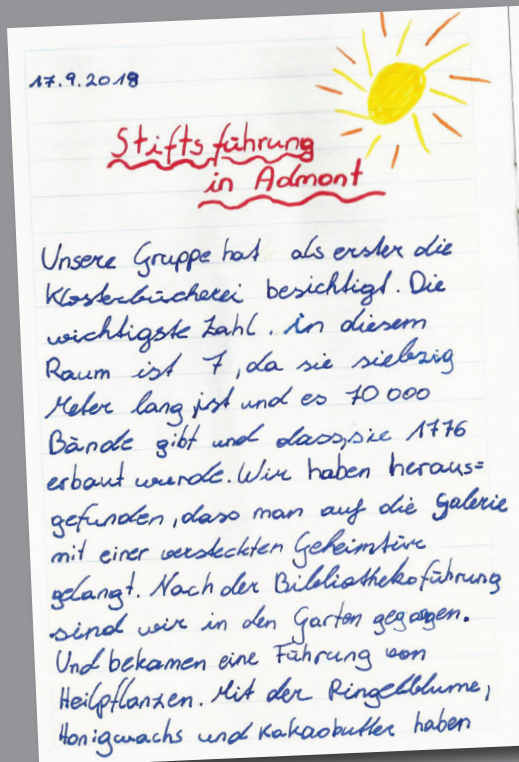 17.9.2018
Stiftsführung
in Admont
Unsere Gruppe hat als erster die
Klosterbücherei besichtigt. Die
wichtigste Zahl. in diesem
Raum ist 7, da sie siebzig
Meter lang ist und es 70 000
Bände gibt und dass sie 1776
erbaut wurde. Wir haben heraus=
gefunden, dass man auf die Galerie
mit einer versteckten Geheimtüre
gelangt. Nach der Bibliotheksführung
sind wir in den Garten gegangen.
Und bekamen eine Führung von
Heilpflanzen. Mit der Ringelblume,
Honigwachs und Kakaobutter haben